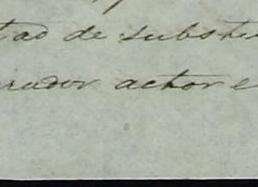 tad de substi
rador actor e